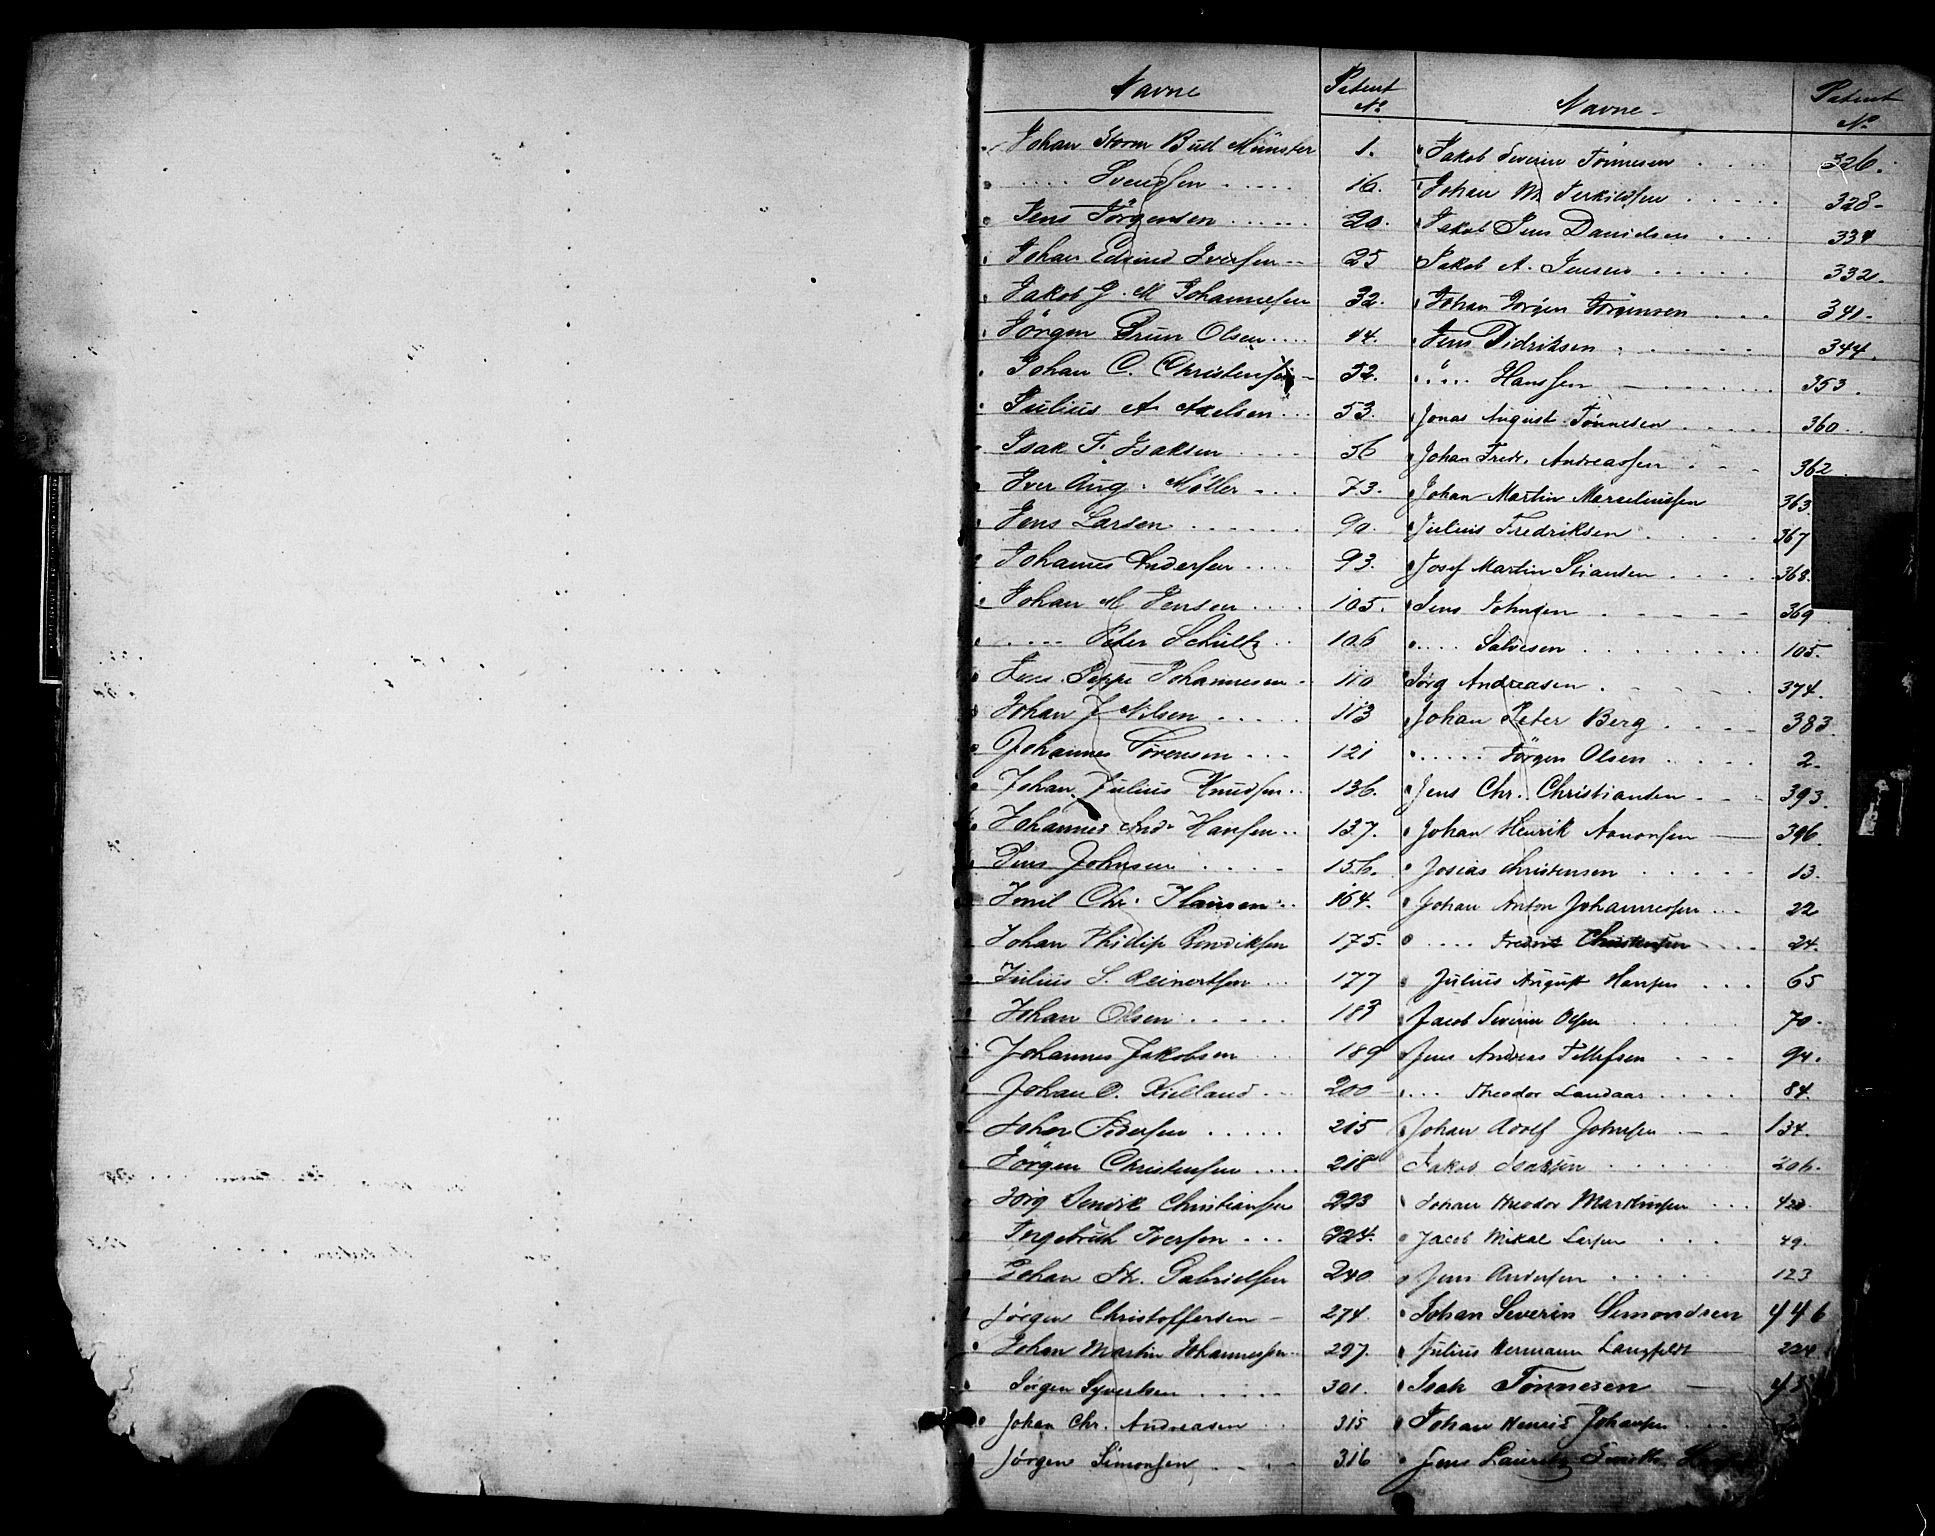 Navne Patent No
Johan Storm Bull Münster 1.
..... Svendsen ..... 16.
Jens Jörgensen ..... 20.
Johan Edvind Iversen .. 25
Jakob G. M Johannessen 32.
Jörgen Brun Olsen .... 44.
Johan C. Christensen - 52.
Julius A Axelsen ... 53.
Isak T. Isaksen .... 56
Iver Aug. Møller - .. 73.
Jens Larsen ..... 90.
Johannes Andersen .... 93.
Johan M Jensen .... 105.
..... Peter Schultz .. 106
Jens Jeppe Johannesen . 110
Johan J Nilsen ..... 113
Johannes Sörensen ... 121
Johan Julius Knudsen .. 136.
Johannes And. Hansen .. 137.
Jens Johnsen ..... 156.
Emil Chr. Hansen .. 164.
Johan Philip Bendiksen 175.
Julius S. Reinertsen ... 177
Johan Olsen ..... 183
Johannes Jakobsen ... 189
Johan O. Kielland ... 200
Johan Pedersen ..... 215
Jörgen Christensen .... 218
Jörg Henrik Christiansen 223
Ingebrith Iversen ... 224.
Johan Fr. Gabrielsen 240
Jörgen Christoffersen - 274.
Johan Martin Johannessen .. 297.
Jørgen Syvertsen ..... 301.
Johan Chr. Andreasen .. 315
Jörgen Simonsen ... 316
Navne - Patent No
Jakob Severin Tönnesen .... 326.
Johan M. Terkildsen ..... 328-
Jakob Jens Danielsen ... 334
Jakob A. Jensen ..... 332.
Johan Jörgen Jörgensen ... 341.
Jens Didriksen ..... 344.
..... Hanssen 353.
Jonas August Tönnesen ..... 360.
Johan Fredr. Andreassen . - - 362
Johan Martin Marseliussen 363
Julius Fredriksen .... 367
Josef Martin Stiansen .... 368.
Jens Johnsen ..... 369
..... Salvesen ......... 105.
Jörg Andreasen ..... 374.
Johan Peter Berg .... 383.
...... Jörgen Olsen ..... 2.
Jens Chr. Christiansen - - - 393.
Johan Henrik Aanonsen 396.
Josias Christensen ..... 13.
Johan Anton Johannessen ... 22
..... Fredrik Christensen ... 24.
Julius August Hansen ... 65
Jacob Severin Olsen .... 70.
Jens Andreas Tellefsen - - - 94.
.... Theodor Landaas ..... 84.
Johan Adolf Johnsen - - 134.
Jakob Isaksen ..... 206.
Johan Theodor Martinsen ... 423.
Jacob Mikal Larsen .... 49.
Jens Andersen ..... 123
Johan Severin Simondsen 446
Julius Hermann Langfeldt 224
Isak Tönnesen
Johan Henrik Johansen
Jens Lauritz